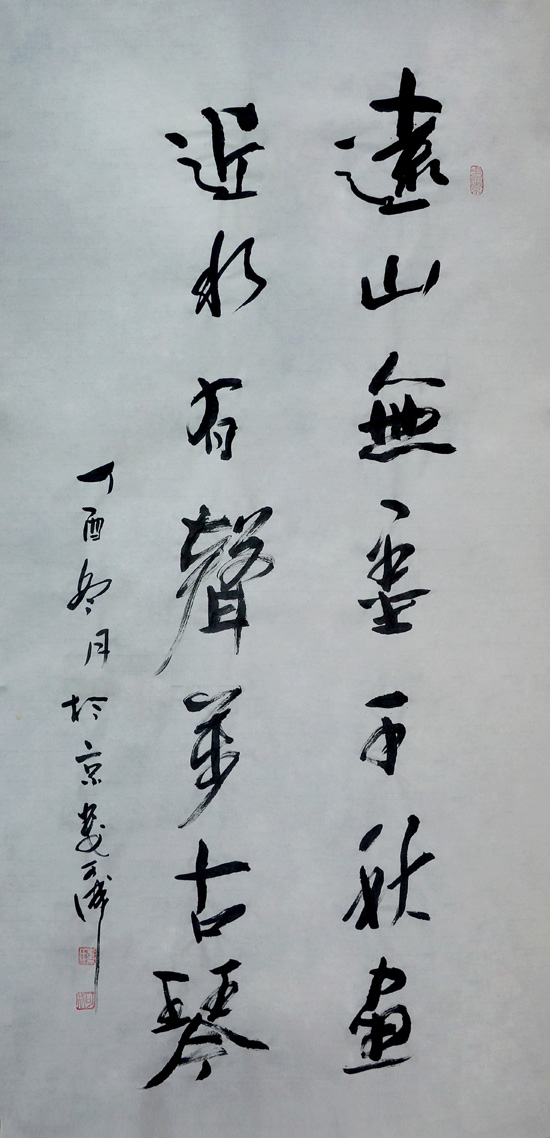 遠山無墨千秋畫
近水有聲萬古琴
丁酉冬月於京